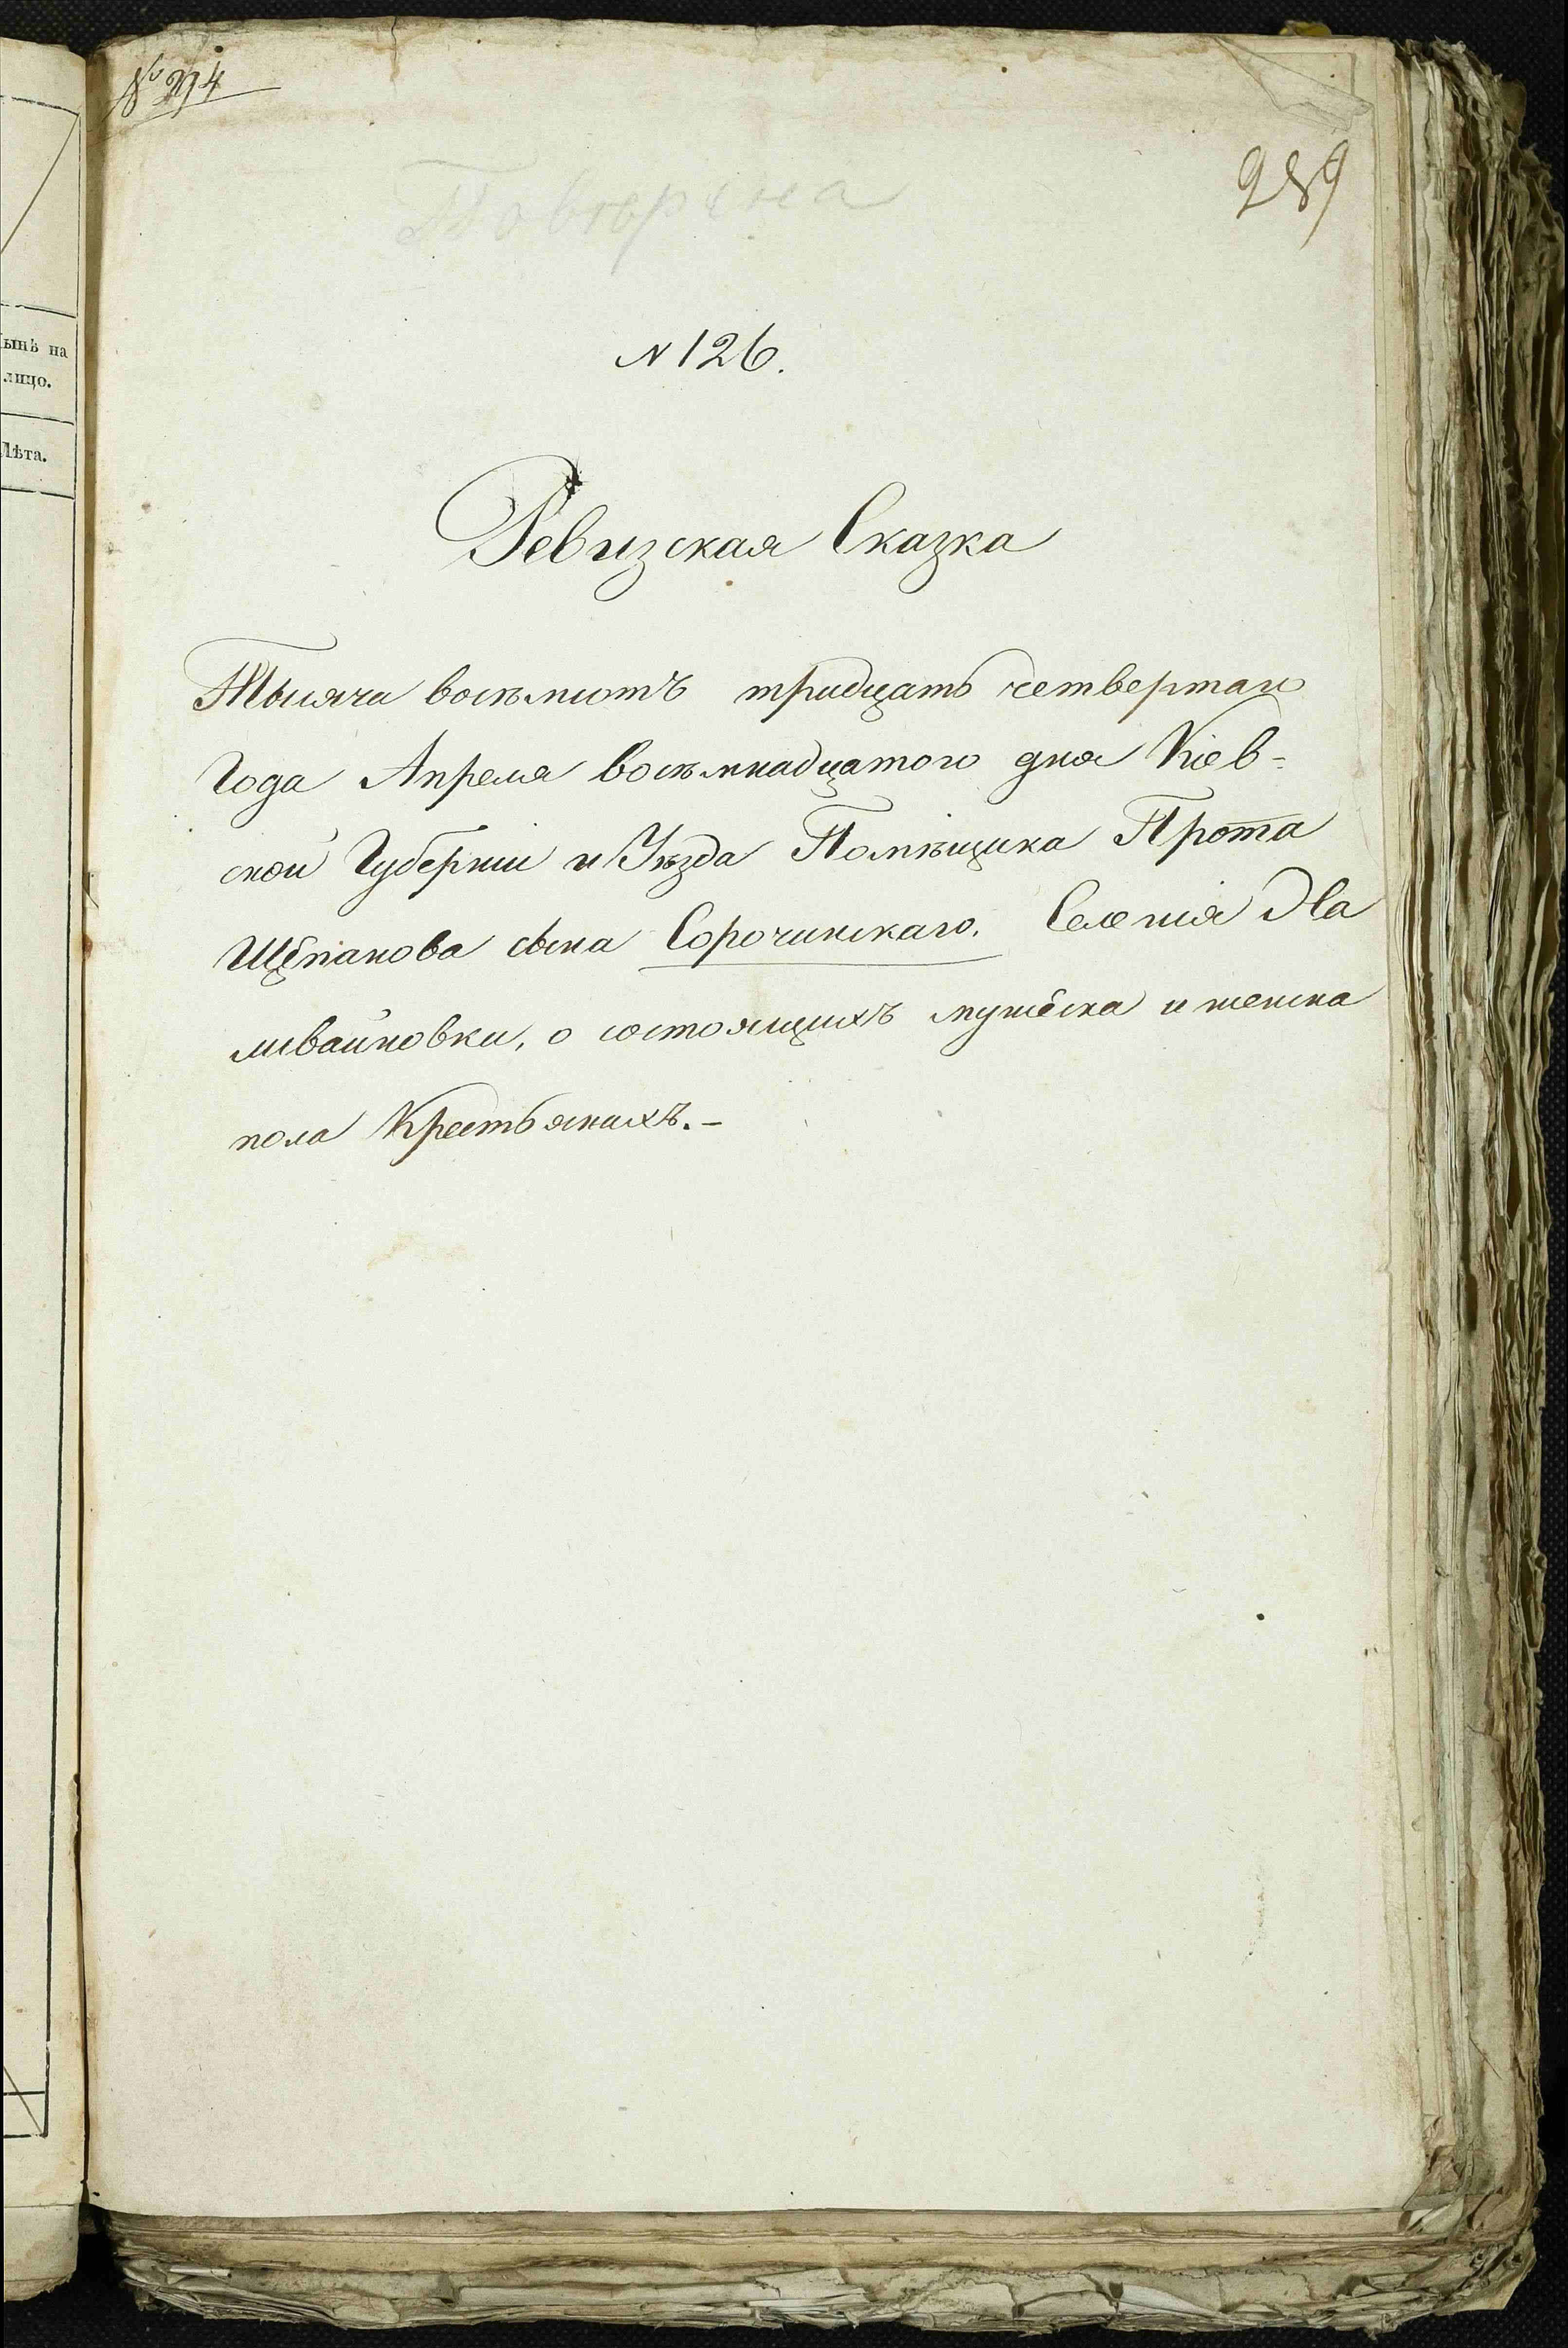 № 274
289
Повѣрена
N 126.
Ревизская Сказка
Тысяча восѣмсотъ тридцать четвертаго
Года Апреля восѣмнадцатого дня Кіев-
ской Губерніи и Уѣзда Помѣщика Прота
Щепанова сына Сорочинскаго. Селенія На
ливайковки, о состоящихъ мужеска и женска
пола Крестьянахъ.-
ынѣ на
лицо.
Лѣта.